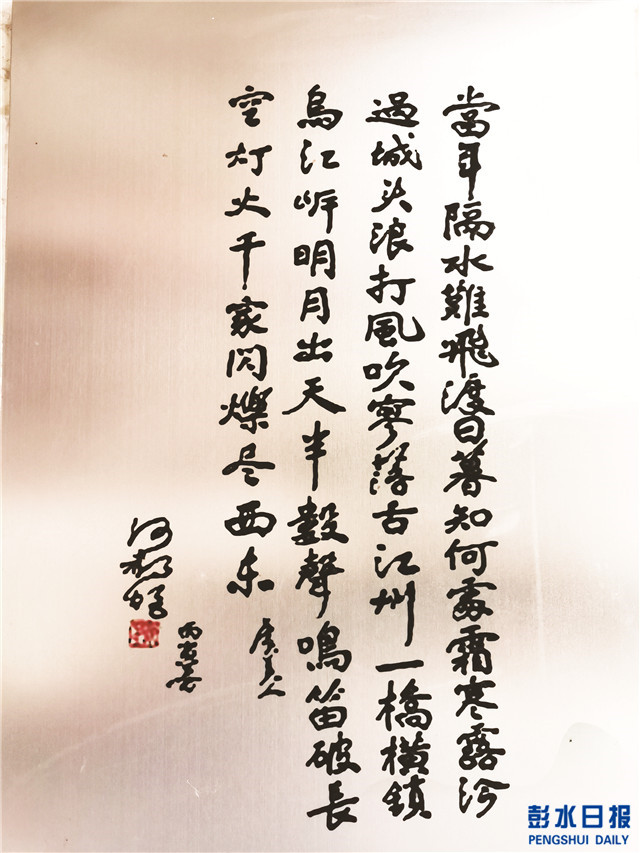 當年隔水難飛渡日暮知何處霜寒露冷
過城头浪打風吹寥落古江州一橋橫鎖
烏江岸明月出天半轂聲鳴笛破長
空灯火千家閃爍尽西东
虞美人
彭水日报
PENGSHUI DAILY